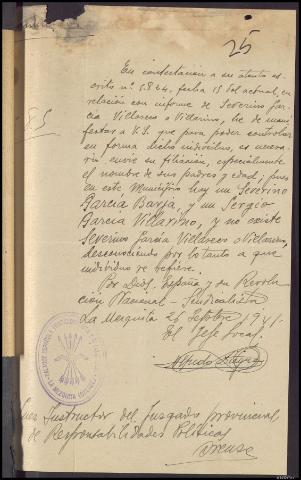 25
En contestacion a su atento es-
crito nº 5.824, fecha 15 del actual, en
relación con informe de Severino Gar-
cia Villarees o Villarino, he de mani-
festar a V.S. que para poder controlar
en forma dicho individuo, es necesa-
rio envie su filiación, especialmente
el nombre de sus padres y edad; pues
en este Municipio hay un Severino
Garcia Barja, y un Sergio
Garcia Villarino, y no existe
Severino Garcia o Villarino,
desconociendo por lo tanto a que
individuo se refiere.
Por Dios, España y su Revolu-
ción Nacional-Sindicalista
La Mezquita 26 Septbre 1941.
El Jefe Local,
Alfredo
Juez Instructor del Juzgado provincial
de Responsabilidades Politicas
Orense